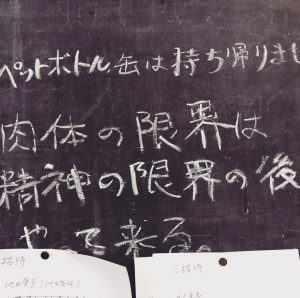 ペットボトル、缶は持ち帰りまし
肉体の限界は
精神の限界の後
やって来る。
招待
ご招待